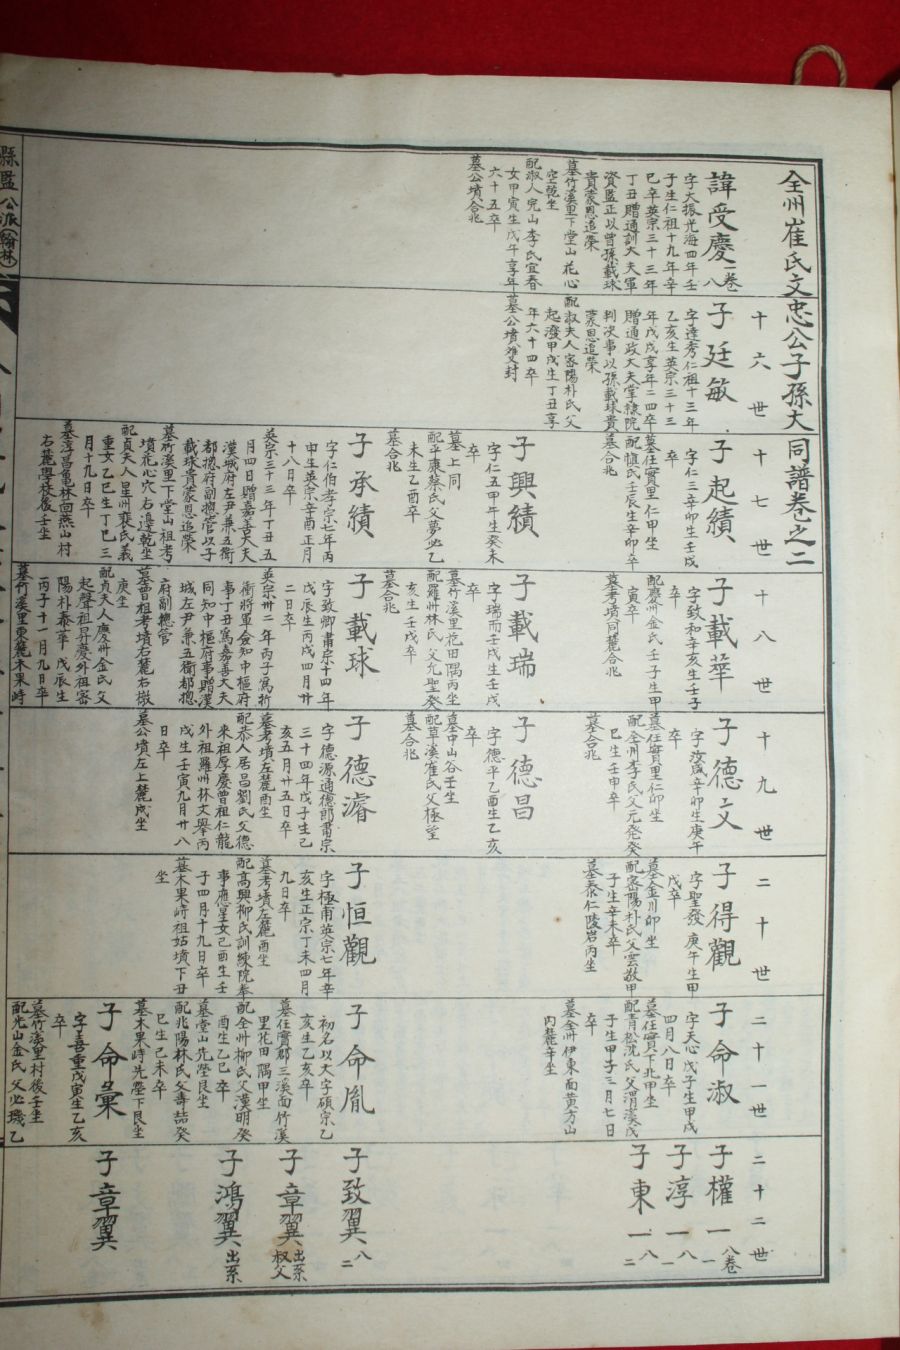 全州崔氏文忠公子孫大同譜卷之二
諱受慶
一卷
八
字大振光海四年壬
子生仁祖十九年辛
巳卒英宗三十三年
丁丑贈通訓大夫軍
資監正以曾孫載球
貴蒙恩追榮
墓竹溪里下堂山花心
空乾坐
配淑人完山李氏宜春
女甲寅生戊午享年
六十五卒
墓公墳合兆
十六世
子廷敏
字達秀仁祖十三年
乙亥生英宗三十三
年戊戌享年二四卒
贈通政大夫掌隸院
判決事以孫載球貴
蒙恩追榮
配淑夫人密陽朴氏父
起潑甲戌生丁丑享
年六十四卒
墓公墳雙封
十七世
子起績
字仁三辛卯生壬戌
卒
墓任實里仁甲坐
配愼氏壬辰生辛卯卒
墓合兆
子興績
字仁五甲午生癸未
卒
墓上同
配平康蔡氏父夢弼乙
未生乙酉卒
墓合兆
子承績
字仁伯孝宗七年丙
申生英宗辛酉正月
十八日卒
英宗三十三年丁丑五
月四日贈嘉善大夫
漢城府左尹兼五衛
都摠府副摠管以子
載球貴蒙恩追榮
墓竹溪里下堂山祖考
墳花心穴右邊乾坐
配貞夫人星州裵氏義
重女乙巳生丁巳三
月十九日卒
墓淳昌龜林回燕山村
右麓學校後壬坐
十八世
子載華
字致和辛亥生壬子
卒
配慶州金氏壬子生甲
寅卒
墓考墳同麓合兆
子載瑞
字瑞而壬戌生壬戌
卒
墓竹溪里花田隅丙坐
配羅州林氏父允聖癸
亥生壬戌卒
墓合兆
子載球
字致卿肅宗十四年
戊辰生丙戌四月廿
二日卒
英宗卅二年丙子爲折
衝將軍僉知中樞府
事丁丑爲嘉善大夫
同知中樞府事贈漢
城左尹兼五衛都摠
府副摠管
墓曾祖考墳右麓右㯳
庚坐
配貞夫人慶州金氏父
起聲祖昇慶外祖密
陽朴泰華戊辰生
丙子十一月九日卒
墓竹溪里東麓木果峙
十九世
子德文
字汝盛辛卯生庚午
卒
墓任實里仁卯坐
配全州李氏父元發癸
巳生壬申卒
墓合兆
子德昌
字德乎乙酉生乙亥
卒
墓中山谷壬坐
配草溪崔氏父極堂
墓合兆
子德濬
字德源通德郎肅宗
三十四年戊子生己
亥五月廿五日卒
墓考墳左麓酉坐
配恭人居昌劉氏父德
來祖厚慶曾祖仁龍
外祖羅州林文擧丙
戌生壬寅九月廿八
日卒
墓公墳左上麓戌坐
二十世
子得觀
字聖發庚午生甲
戌卒
墓金川卯坐
配密陽朴氏父雲敖甲
子生辛未卒
墓泰仁陵岩丙坐
子恒觀
字極甫英宗七年辛
亥生正宗丁未四月
九日卒
墓考墳左麓酉坐
配高興柳氏訓練院奉
事應星女己酉生壬
子四月十九日卒
墓木果峙祖姑墳下丑
坐
二十一世
子命淑
字天心戊子生甲戌
四月八日卒
墓任實下北甲坐
配青松沈氏父渭漢戊
子生甲子三月七日
卒
墓全州伊東面黃方山
內麓辛坐
子命胤
初名以大字碩宗乙
亥生乙亥卒
墓任實郡三溪面竹溪
里花田隅甲坐
配全州柳氏父漢明癸
酉生乙巳卒
墓堂山先塋艮坐
配兆陽林氏父壽喆癸
巳生己未卒
墓木果峙先塋下艮坐
子命彙
字喜重戊寅生乙亥
卒
墓竹溪里村後壬坐
配光山金氏父必璣乙
二十二世
子權一
八卷
一
子淳一
八
一
子東一
八
二
子致翼
八
二
子章翼
出系
叔父
子鴻翼
出系
子章翼
縣監公派(翰林)